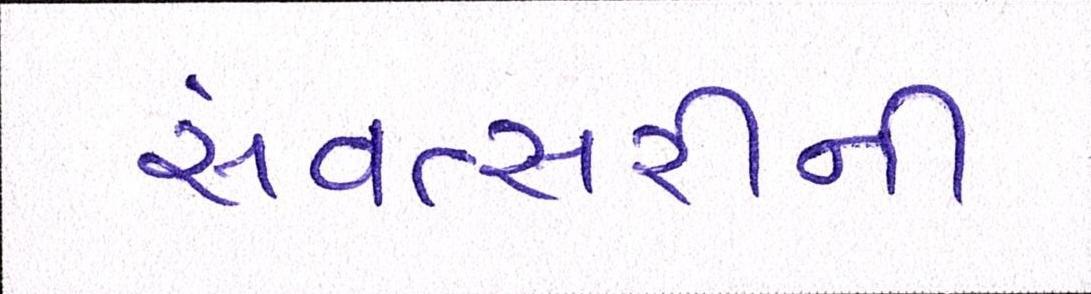 સંવત્સરીની